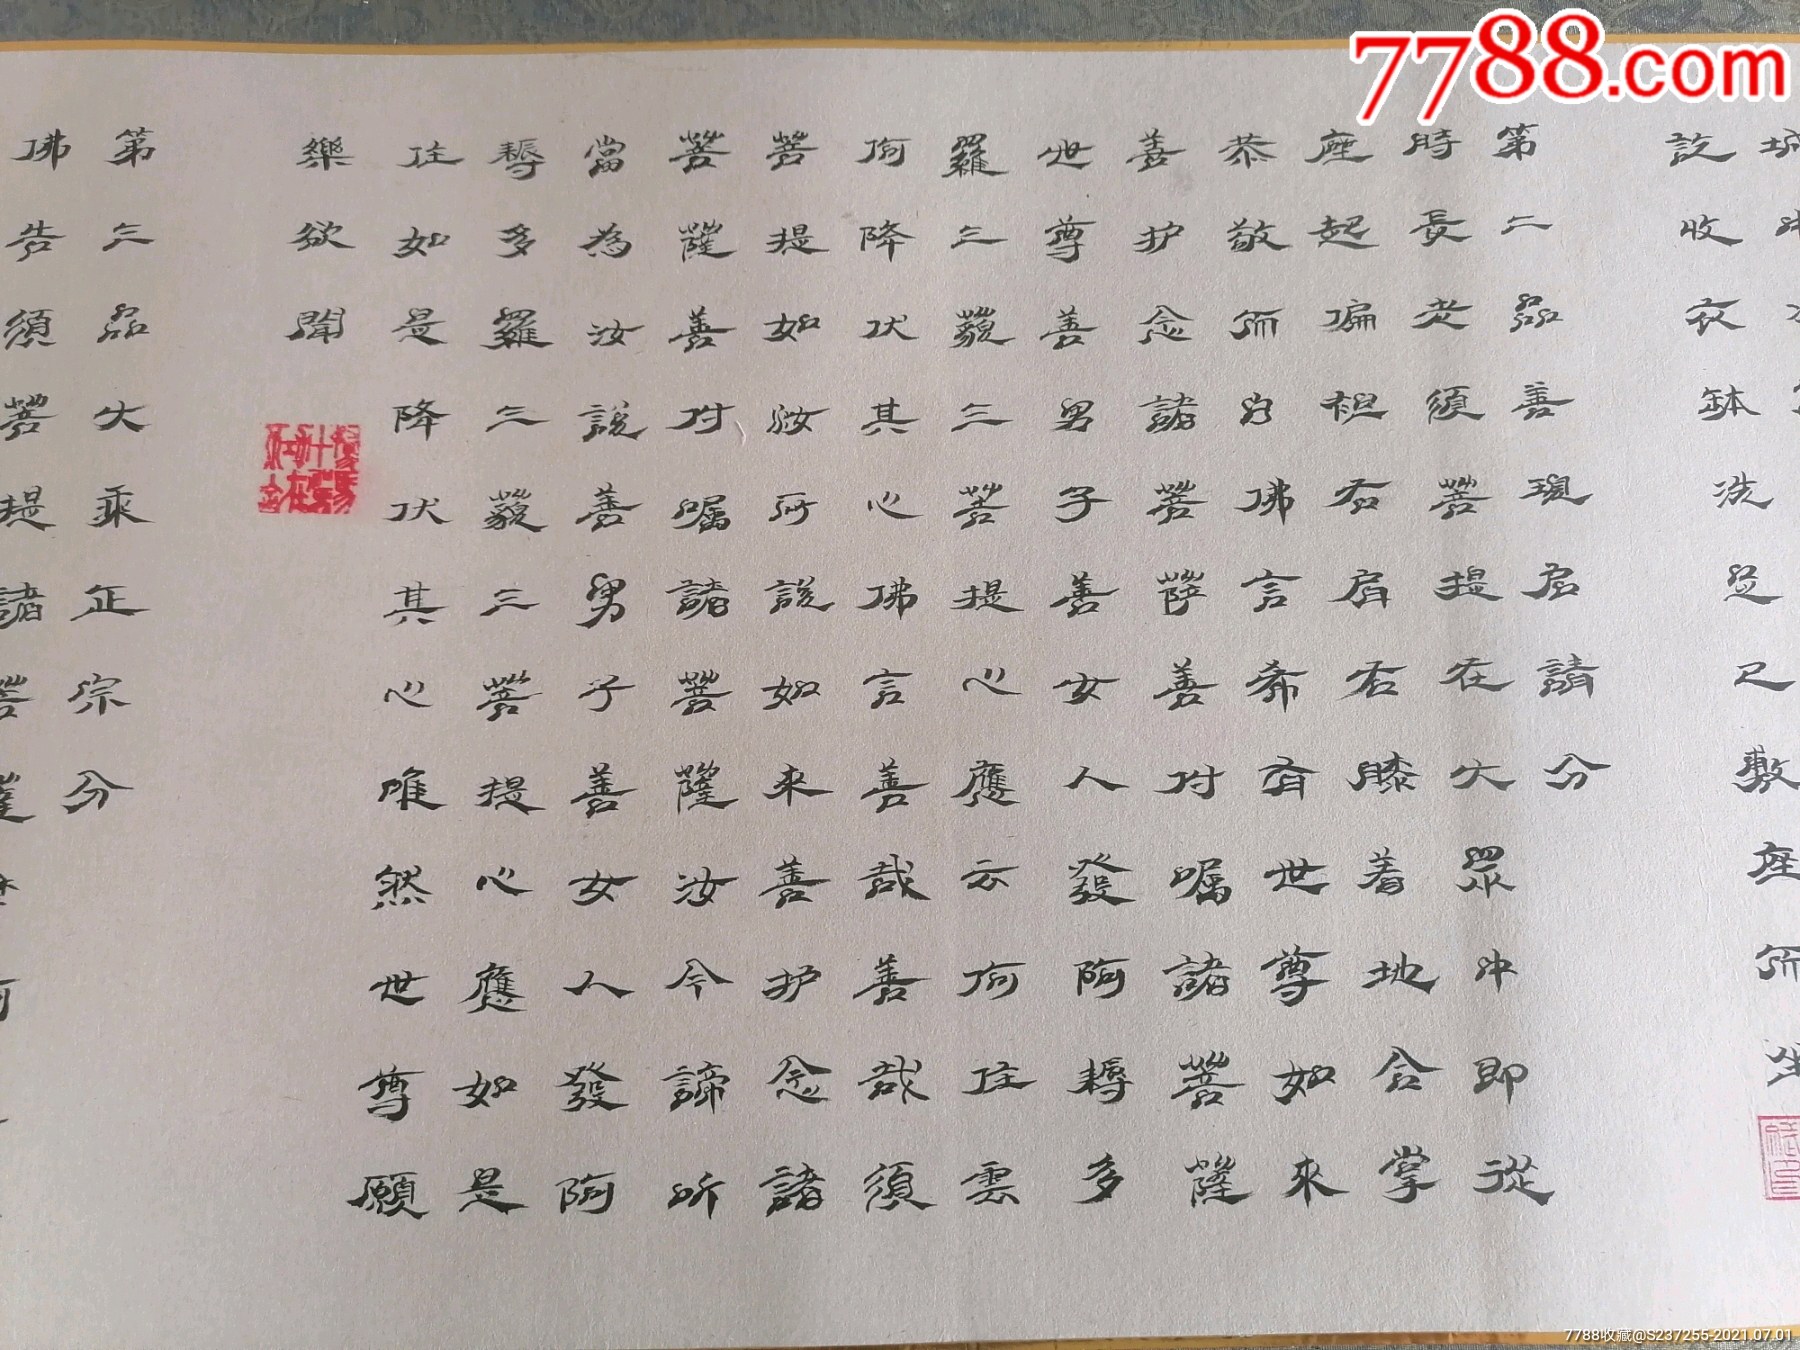 城
訖收衣缽洗足已敷座而坐
第二品善現启請分
時長老須菩提在大眾中即從
座起偏袒右肩右膝着地合掌
恭敬而白佛言希有世尊如來
善护念諸菩萨善付嘱諸菩薩
世尊善男子善女人發阿耨多
羅三藐三菩提心應云何住雲
何降伏其心佛言善哉善哉須
菩提如汝所說如來善护念諸
菩薩善付嘱諸菩薩汝今諦听
當為汝說善男子善女人發阿
耨多羅三藐三菩提心應如是
住如是降伏其心唯然世尊願
樂欲聞
第三品大乘正宗分
佛告須菩提諸菩薩
7788.com
7788收藏@S237255-2021.07.01